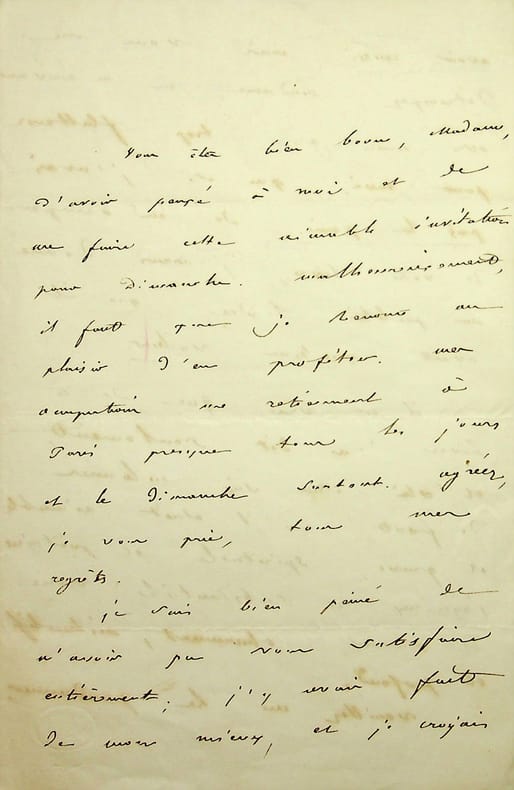 Vous êtes bien bonne, Madame,
d'avoir pensé à moi et de
me faire cette aimable invitation
pour Dimanche. malheureusement,
il faut que je renonce au
plaisir d'en profiter. mes
occupations me retiennent à
Paris presque tous les jours
et le Dimanche surtout. agréez,
je vous prie, tous mes
regrets.
je suis bien peiné de
n'avoir pu vous satisfaire
entièrement; j'y avais fait
de mon mieux, et je croyais